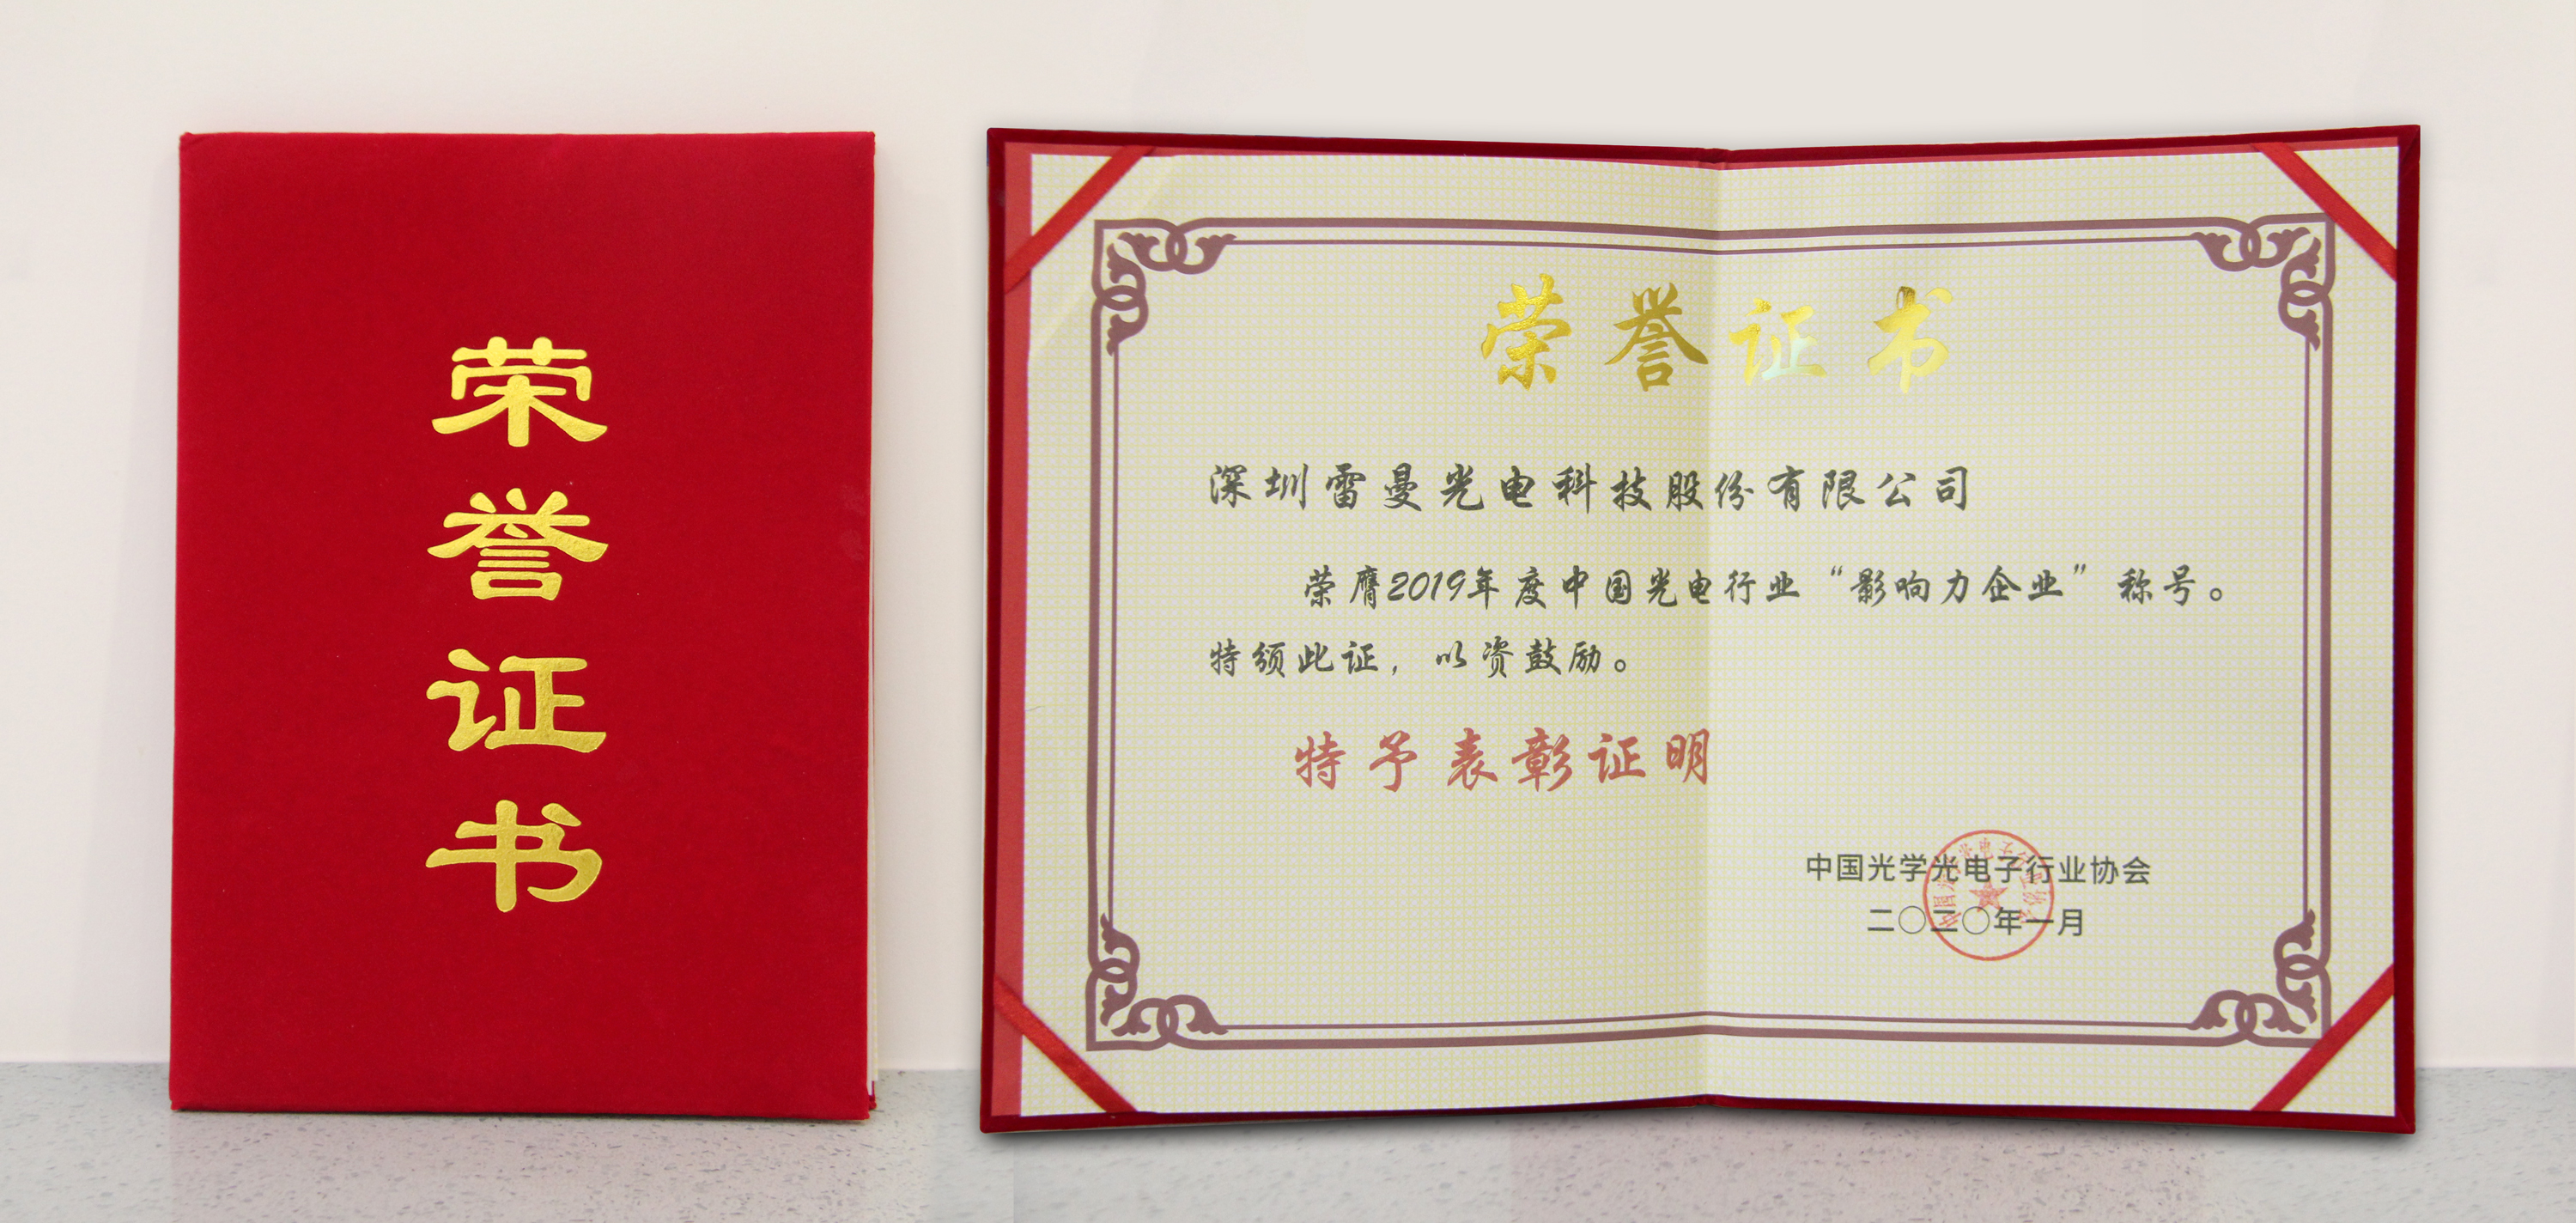 荣誉证书
荣誉证书
深圳雷曼光电科技股份有限公司
荣膺2019年度中国光电行业“影响力企业”称号。
特颁此证，以资鼓励。
特予表彰证明
中国光学光电子行业协会
二〇二〇年一月
中国光学光电子行业协会